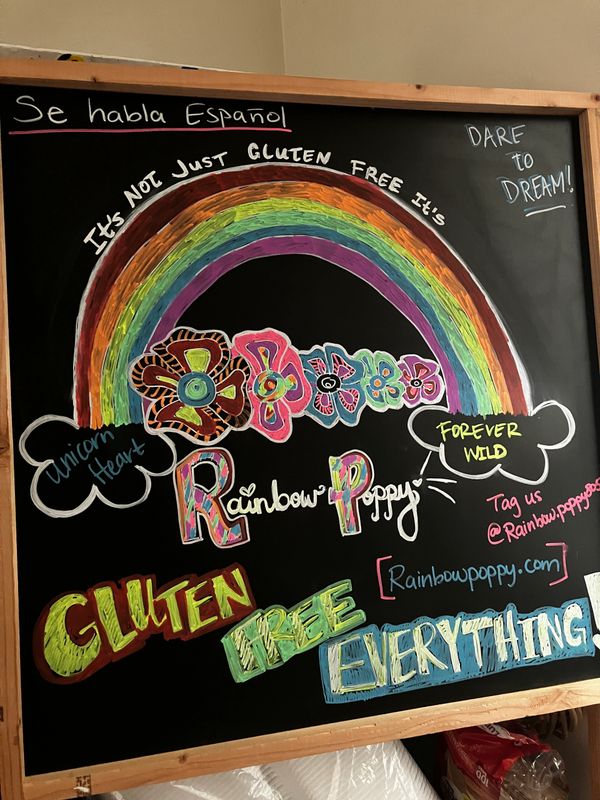 Se habla Español
DARE
to
DREAM!
It's NOT JUST GLUTEN FREE It's
Unicorn
Heart
FOREVER
WILD
Rainbow Poppy
Tag us
@Rainbow.poppy805
[Rainbowpoppy.com]
GLUTEN
FREE
EVERYTHING!